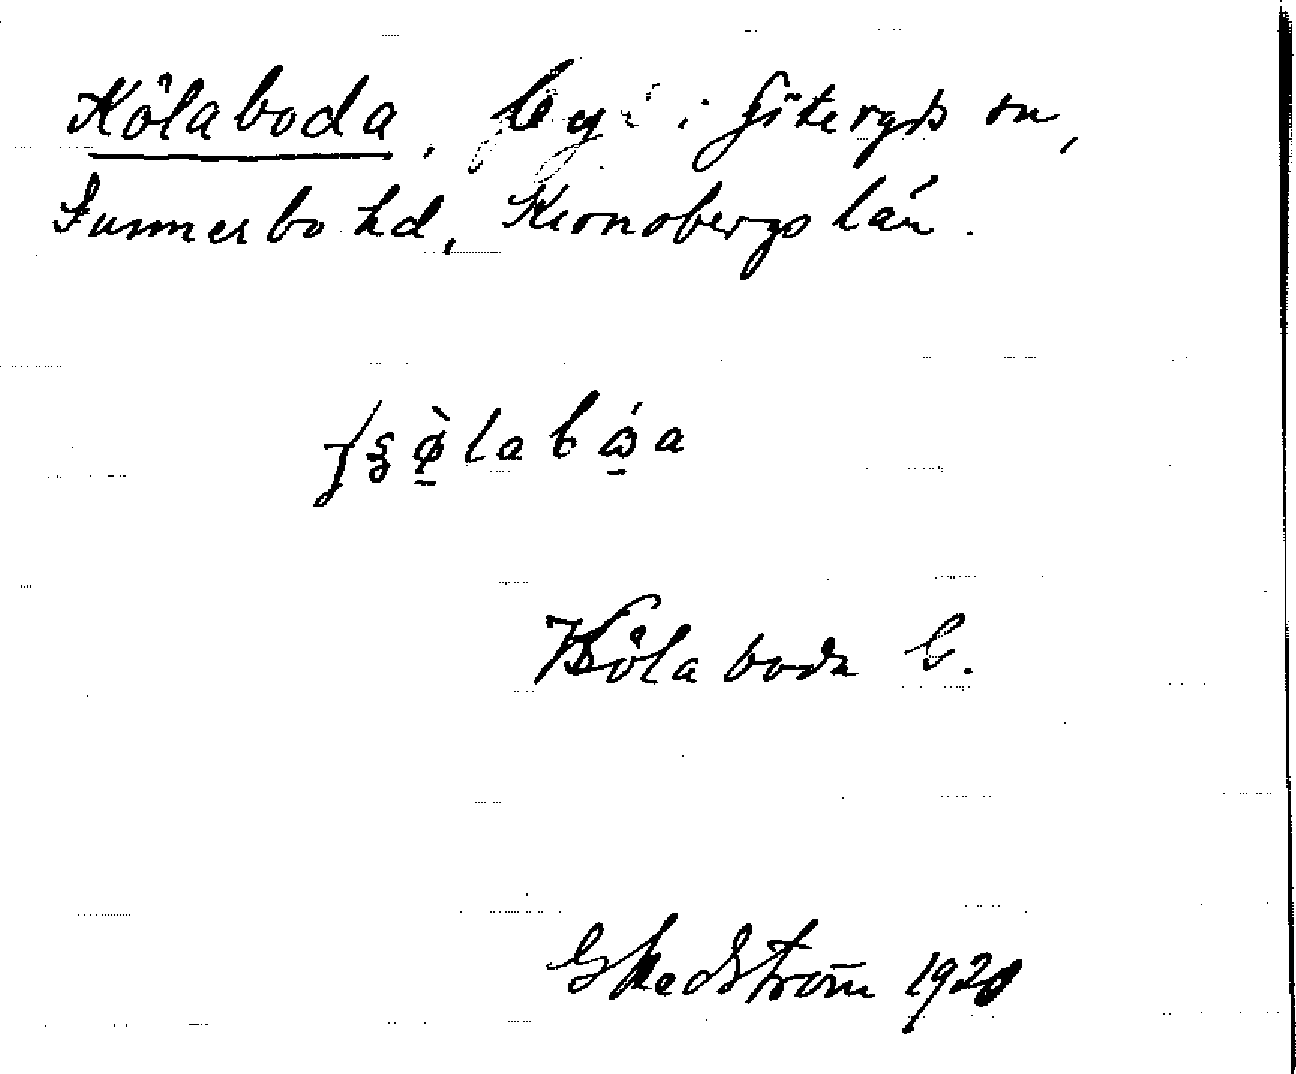 Kölaboda, by i Göteryds sn,
Sunnerbo hd, Kronobergs län.
Kölaboda b.
G Hedström 1920